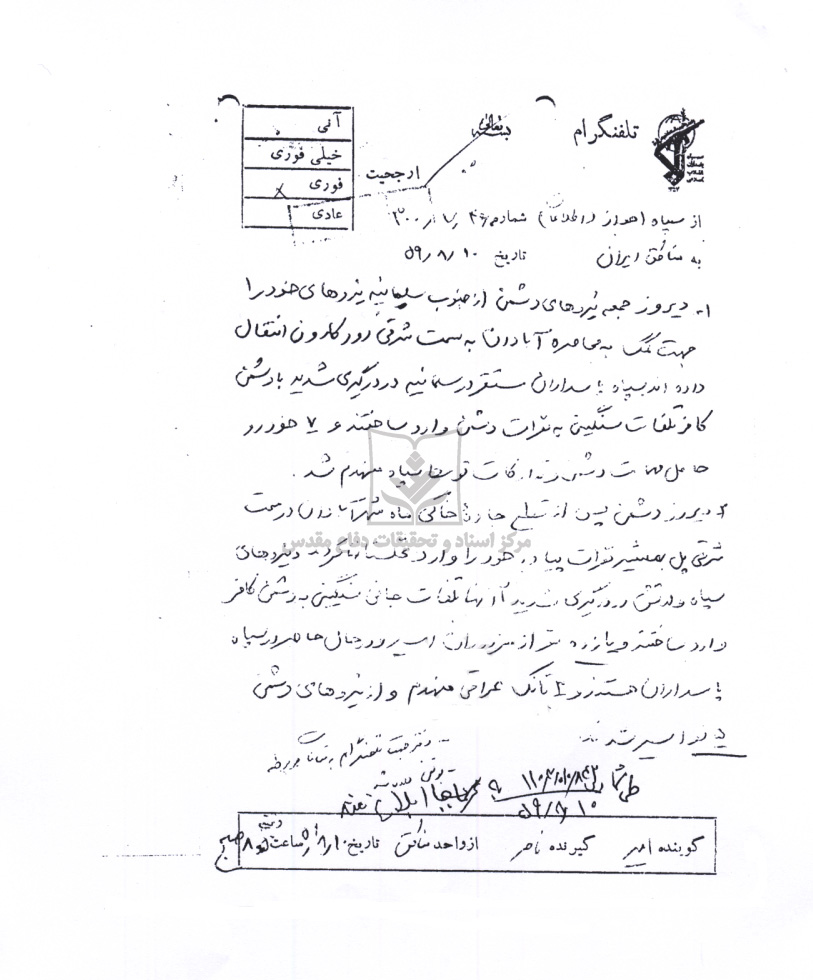 بسمه تعالی
تلفنگرام
ارجحیت
آنی
خیلی فوری
فوری
عادی
از سپاه اهواز (اطلاعات) شماره
به مناطق ایران تاریخ ۵۹/۸/۱۰
۱- دیروز جمعه نیروهای دشمن از جنوب سلیمانیه نیروهای خود را
جهت کمک به محاصره آبادان به سمت شرقی رود کارون انتقال
داده اند سپاه پاسداران مستقر در سلمانیه در درگیری شدید با دشمن
کافر تلفات سنگینی به نفرات دشمن وارد ساختند و ۷ خودرو
حامل مهمات دشمن و تدارکات توسط سپاه منهدم شد.
۲- دیروز دشمن پس از قطع جاده خاکی ماه شهر آبادان در سمت
شرقی پل بهمنشیر نفرات پیاده خود را وارد نیروهای
سپاه و ارتش در درگیری شدید با آنها تلفات جانی سنگینی به دشمن کافر
وارد ساختند و یازده نفر از مزدوران اسیر و در حال حاضر در سپاه
پاسداران هستند و ۴ تانک عراقی منهدم و از نیروهای دشمن
اسیر شدند
مرکز اسناد و تحقیقات دفاع مقدس
۵۹/۸/۱۰
گوینده امیر گیرنده ناصر از واحد مناطق تاریخ ۸/۱۰ ساعت ۸ صبح